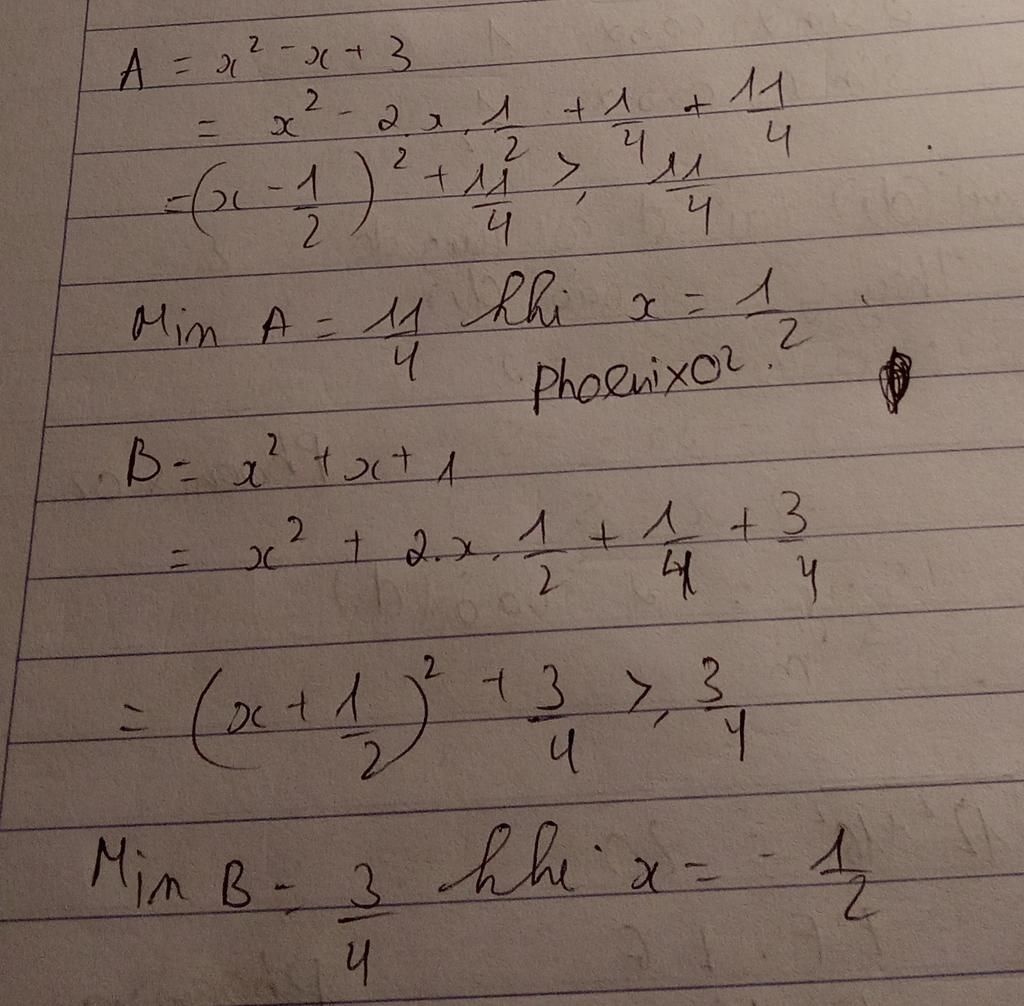 A = x² - x + 3
= x² - 2.x.1/2 + 1/4 + 11/4
= (x - 1/2)² + 11/4 ≥ 11/4
Min A = 11/4 khi x = 1/2.
PhoenixO2.
B = x² + x + 1
= x² + 2.x.1/2 + 1/4 + 3/4
= (x + 1/2)² + 3/4 ≥ 3/4
Min B = 3/4 khi x = - 1/2